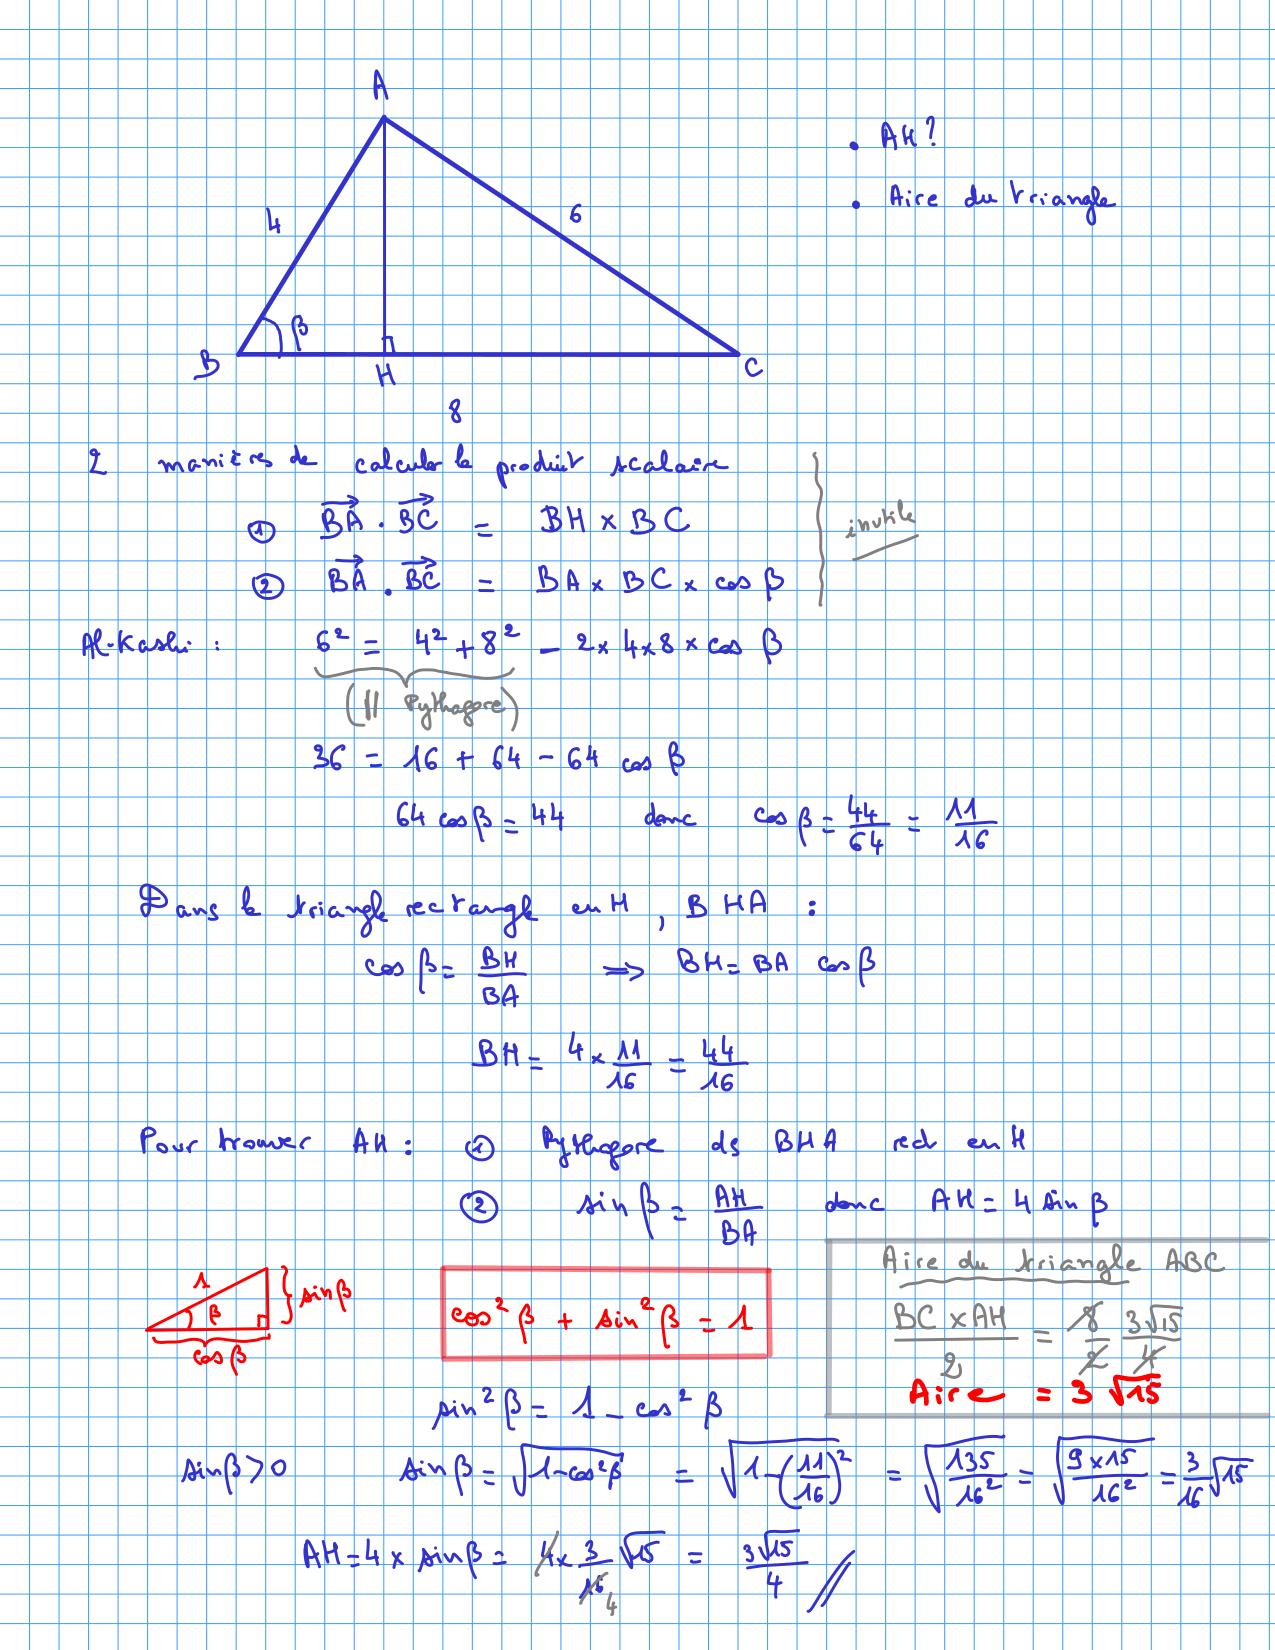 A
• AH?
• Aire du triangle
4
6
β
B
H
C
8
2 manières de calculer le produit scalaire
① BA⃗ . BC⃗ = BH × BC
inutile
② BA⃗ . BC⃗ = BA × BC × cos β
Al-Kashi : 6² = 4² + 8² - 2 × 4 × 8 × cos β
(// Pythagore)
36 = 16 + 64 - 64 cos β
64 cos β = 44 donc cos β = 44/64 = 11/16
Dans le triangle rectangle en H, BHA :
cos β = BH/BA ⟹ BH = BA cos β
BH = 4 × 11/16 = 44/16
Pour trouver AH : ① Pythagore ds BHA rect en H
② sin β = AH/BA donc AH = 4 sin β
Aire du triangle ABC
1
β
sin β
cos β
cos² β + sin² β = 1
BC × AH / 2 = 8/2 3√15/4
Aire = 3 √15
sin² β = 1 - cos² β
sin β > 0 sin β = √(1 - cos² β) = √(1 - (11/16)²) = √(135/16²) = √(9 × 15/16²) = 3/16 √15
AH = 4 × sin β = 4 × 3/16 √15 = 3√15/4
4